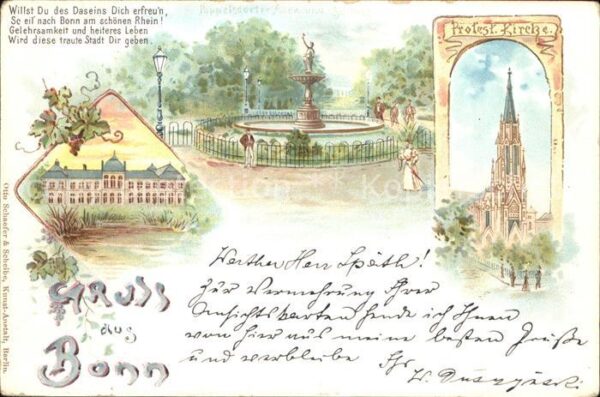 Willst Du des Daseins Dich erfreu'n,
So eil' nach Bonn am schönen Rhein!
Gelehrsamkeit und heiteres Leben
Wird diese traute Stadt Dir geben.
Poppelsdorfer
Protest. Kirche.
Werther Herr Späth!
Zur Vermehrung Ihrer
Ansichtskarten sende ich Ihnen
von hier aus meine besten Grüße
und verbleibe Ihr
W.
Gruss
aus
Bonn
Otto Schaefer & Scheibe, Kunst-Anstalt, Berlin.